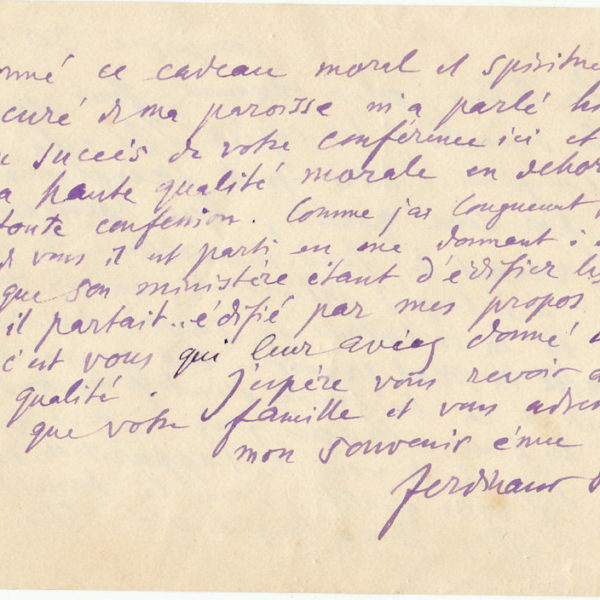 onné ce cadeau moral et spiritue
curé de ma paroisse m'a parlé hi
u succés de votre conférence ici et
a haute qualité morale en dehor
toute confession. Comme j'ai longuement
de vous il est parti en me donnant
que son ministére étant d'édifier les
il partait.. édifié par mes propos
c'est vous qui leur aviez donné
qualité. J'espére vous revoir a
que votre famille et vous adres
mon souvenir émue
Ferdinand